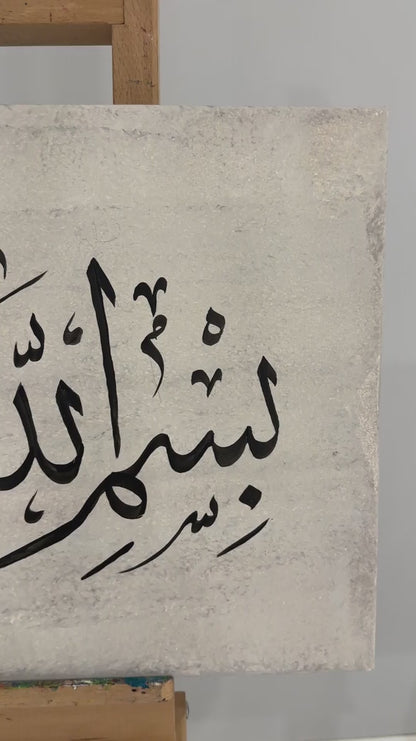 بِسْمِ اللّ